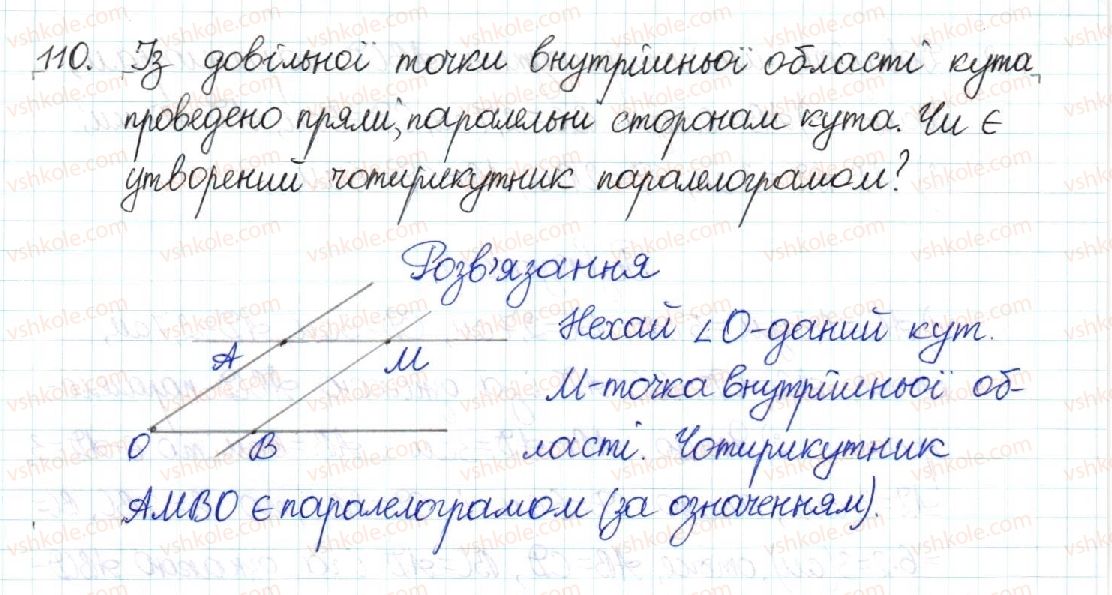 110. Із довільної точки внутрішньої області кута
проведено прямі, паралельні сторонам кута. Чи є
утворений чотирикутник паралелограмом?
Розв'язання
A M
O B
Нехай ∠O-даний кут.
M-точка внутрішньої об-
ласті. Чотирикутник
AMBO є паралелограмом (за означенням).
vshkole.com